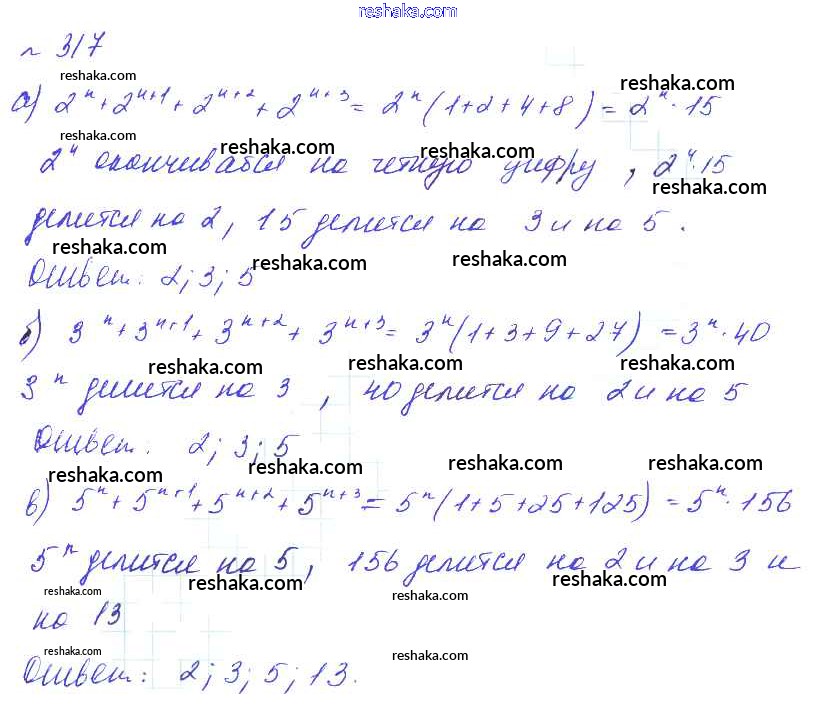 reshaka.com
№ 317
reshaka.com
reshaka.com
а) 2ⁿ + 2ⁿ⁺¹ + 2ⁿ⁺² + 2ⁿ⁺³ = 2ⁿ(1+2+4+8) = 2ⁿ · 15
reshaka.com
reshaka.com reshaka.com
2ⁿ оканчивается на четную цифру, 2ⁿ·15
reshaka.com
делится на 2, 15 делится на 3 и на 5.
reshaka.com reshaka.com reshaka.com
Ответ: 2; 3; 5
б) 3ⁿ + 3ⁿ⁺¹ + 3ⁿ⁺² + 3ⁿ⁺³ = 3ⁿ(1+3+9+27) = 3ⁿ · 40
reshaka.com reshaka.com reshaka.com
3ⁿ делится на 3, 40 делится на 2 и на 5
Ответ: 2; 3; 5
reshaka.com reshaka.com reshaka.com reshaka.com
в) 5ⁿ + 5ⁿ⁺¹ + 5ⁿ⁺² + 5ⁿ⁺³ = 5ⁿ(1+5+25+125) = 5ⁿ · 156
5ⁿ делится на 5, 156 делится на 2 и на 3 и
reshaka.com reshaka.com
reshaka.com reshaka.com
на 13
reshaka.com reshaka.com
Ответ: 2; 3; 5; 13.